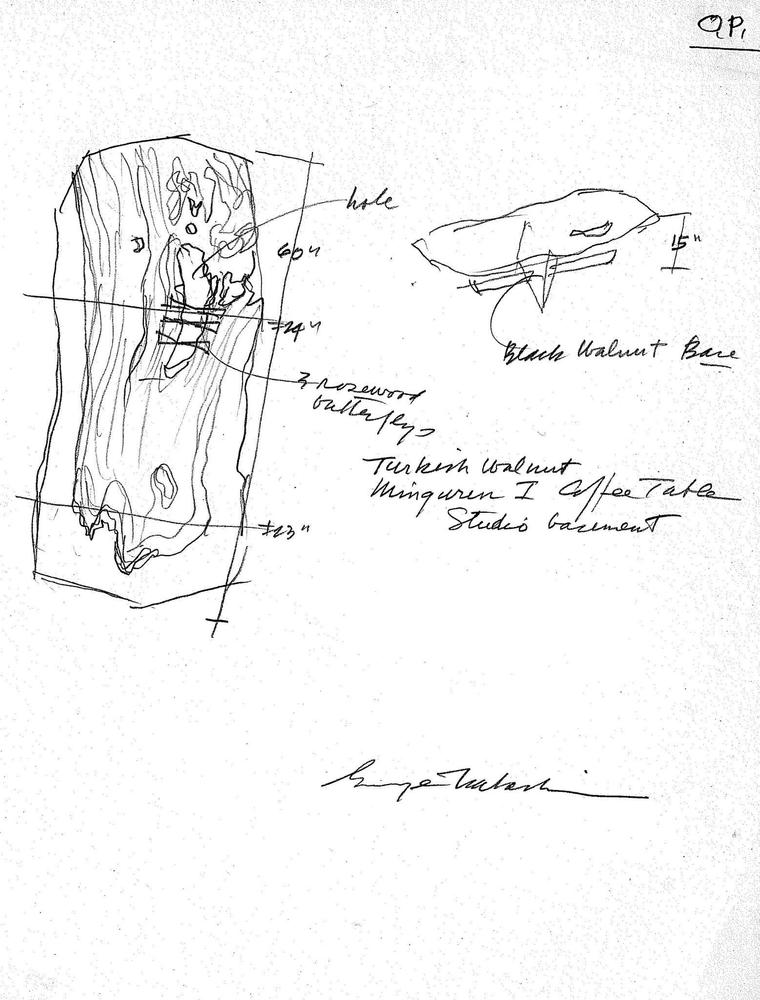 hole
60"
15"
±24"
Black Walnut Base
3 rosewood
butterflys
Turkish Walnut
Minguren I Coffee Table
Studio basement
±23"
George Nakashima